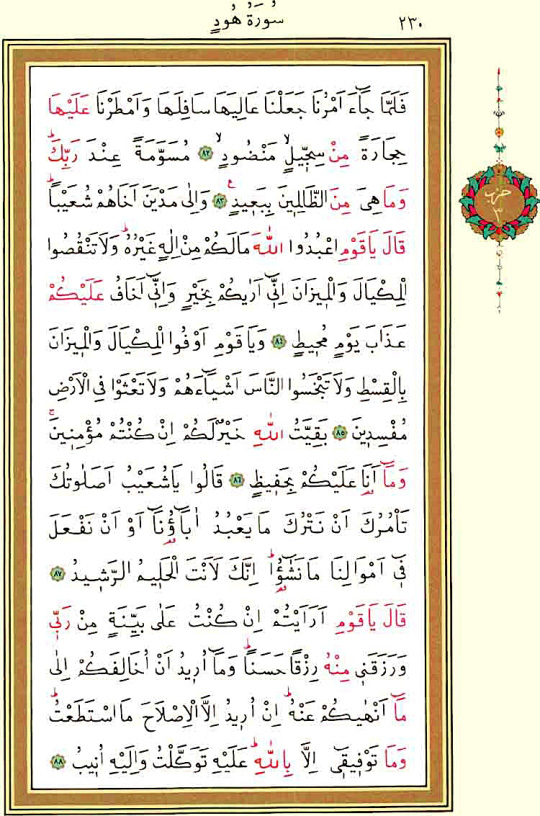 سُورَةُ هُودٍ
٢٣٠
فَلَمَّا جَٓاءَ اَمْرُنَا جَعَلْنَا عَالِيَهَا سَافِلَهَا وَاَمْطَرْنَا عَلَيْهَا
حِجَارَةً مِنْ سِجّ۪يلٍۙ مَنْضُودٍۙ ﴿٨٢﴾ مُسَوَّمَةً عِنْدَ رَبِّكَۜ
وَمَا هِيَ مِنَ الظَّالِم۪ينَ بِبَع۪يدٍ۟ ﴿٨٣﴾ وَاِلٰى مَدْيَنَ اَخَاهُمْ شُعَيْبًاۜ
قَالَ يَا قَوْمِ اعْبُدُوا اللّٰهَ مَا لَكُمْ مِنْ اِلٰهٍ غَيْرُهُۜ وَلَا تَنْقُصُوا
الْمِكْيَالَ وَالْم۪يزَانَ اِنّ۪ٓي اَرٰيكُمْ بِخَيْرٍ وَاِنّ۪ٓي اَخَافُ عَلَيْكُمْ
عَذَابَ يَوْمٍ مُح۪يطٍ ﴿٨٤﴾ وَيَا قَوْمِ اَوْفُوا الْمِكْيَالَ وَالْم۪يزَانَ
بِالْقِسْطِ وَلَا تَبْخَسُوا النَّاسَ اَشْيَٓاءَهُمْ وَلَا تَعْثَوْا فِي الْاَرْضِ
مُفْسِد۪ينَ ﴿٨٥﴾ بَقِيَّتُ اللّٰهِ خَيْرٌ لَكُمْ اِنْ كُنْتُمْ مُؤْمِن۪ينَۚ
وَمَٓا اَنَا۬ عَلَيْكُمْ بِحَف۪يظٍ ﴿٨٦﴾ قَالُوا يَا شُعَيْبُ اَصَلٰوتُكَ
تَأْمُرُكَ اَنْ نَتْرُكَ مَا يَعْبُدُ اٰبَٓاؤُ۬نَٓا اَوْ اَنْ نَفْعَلَ
ف۪ٓي اَمْوَالِنَا مَا نَشٰٓؤُ۬اۜ اِنَّكَ لَاَنْتَ الْحَل۪يمُ الرَّش۪يدُ ﴿٨٧﴾
قَالَ يَا قَوْمِ اَرَاَيْتُمْ اِنْ كُنْتُ عَلٰى بَيِّنَةٍ مِنْ رَبّ۪ي
وَرَزَقَن۪ي مِنْهُ رِزْقًا حَسَنًاۜ وَمَٓا اُر۪يدُ اَنْ اُخَالِفَكُمْ اِلٰى
مَٓا اَنْهٰيكُمْ عَنْهُۜ اِنْ اُر۪يدُ اِلَّا الْاِصْلَاحَ مَا اسْتَطَعْتُۜ
وَمَا تَوْف۪يق۪ٓي اِلَّا بِاللّٰهِۜ عَلَيْهِ تَوَكَّلْتُ وَاِلَيْهِ اُن۪يبُ ﴿٨٨﴾
حزب